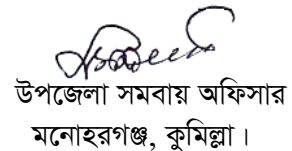 উপজেলা সমবায় অফিসার
মনোহরগঞ্জ, কুমিল্লা।